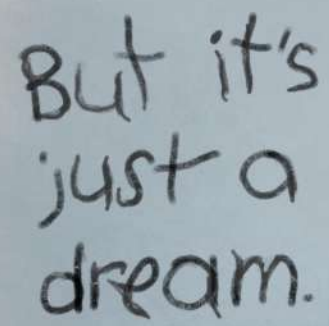 But it's
just a
dream.